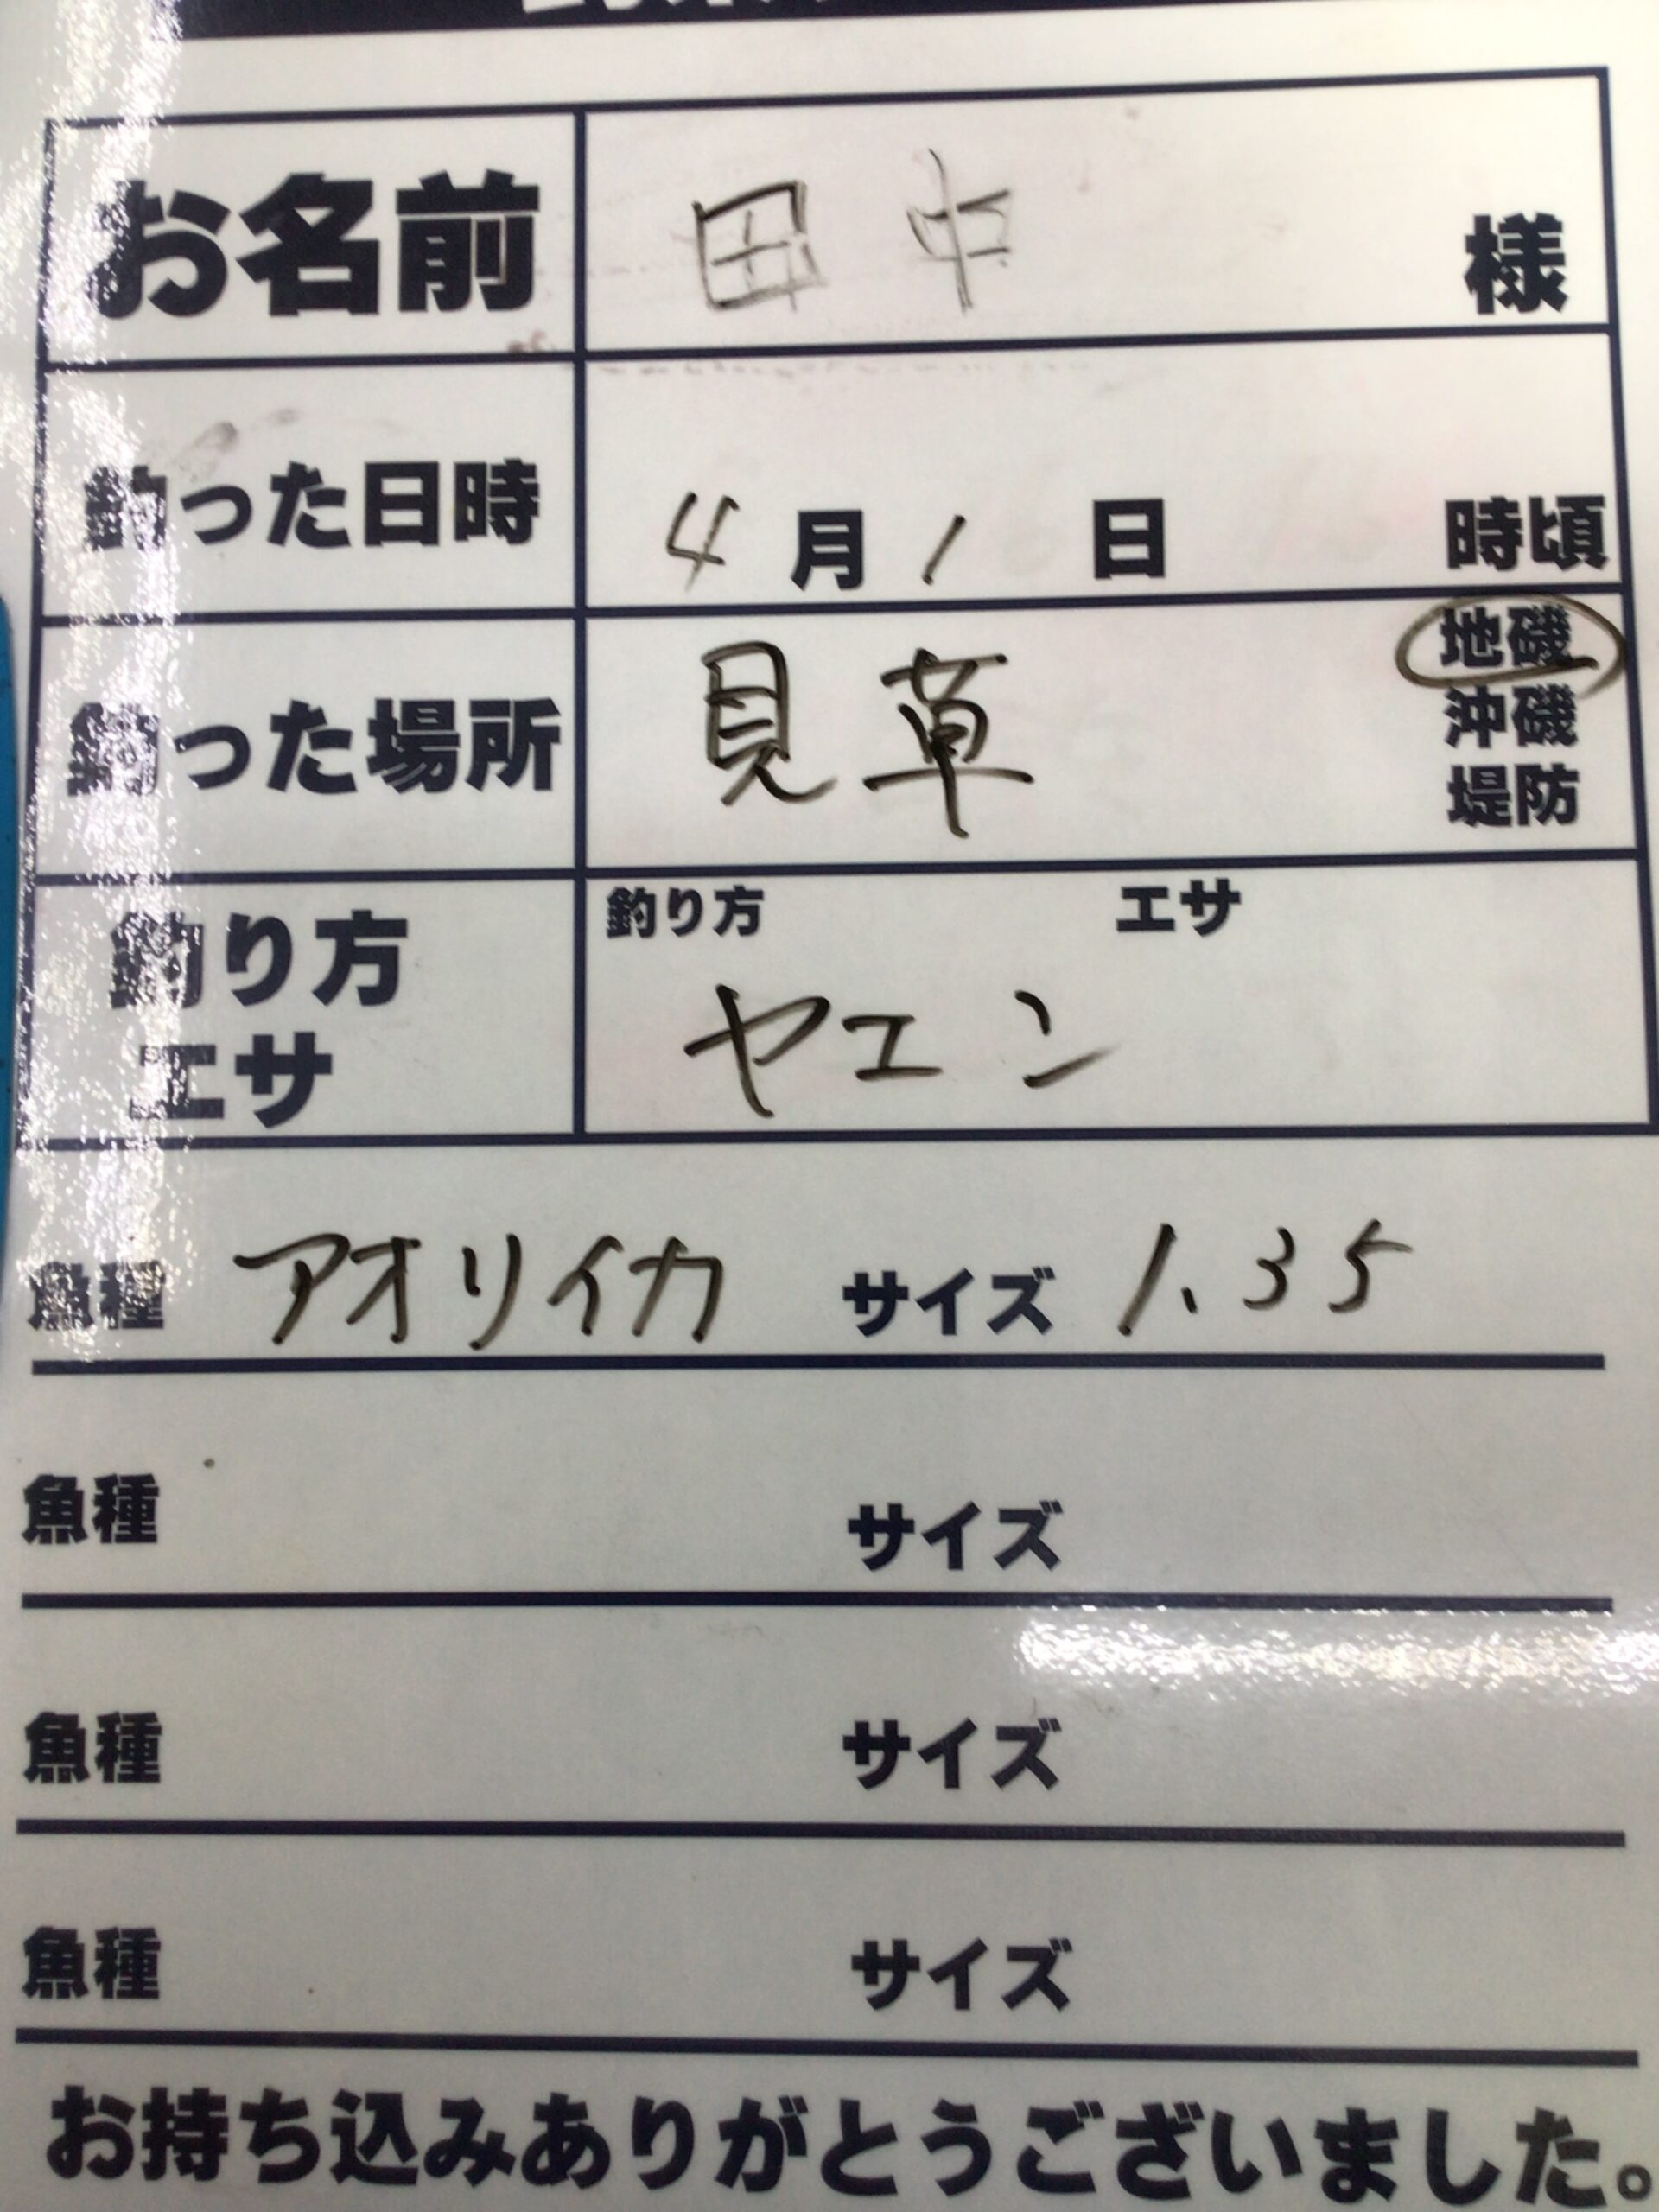 お名前 田中 様
釣った日時 4月1日 時頃
地磯
釣った場所 見草 沖磯
堤防
釣り方 エサ
釣り方 ヤエン
エサ
魚種 アオリイカ サイズ 1.35
魚種 サイズ
魚種 サイズ
魚種 サイズ
お持ち込みありがとうございました。